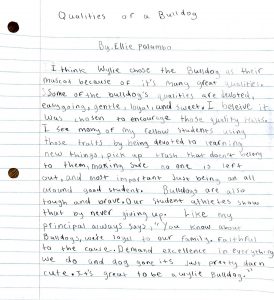 Qualities of a Bulldog
By: Ellie Palambo
I think Wylie chose the Bulldog as their
mascot because of it's many great qualities.
Some of the bulldog's qualities are devoted,
easygoing, gentle, loyal, and sweet. I beleive it
was chosen to encourage those quality traits.
I see many of my fellow students using
those traits by being devoted to learning
new things, pick up trash that doesn't belong
to them, making sure no one is left
out, and most important just being an all
around good student. Bulldogs are also
tough and brave. Our student athletes show
that by never giving up. Like my
principal always says, "You know about
Bulldogs, we're loyal to our family. Faithful
to the cause. Demand excellence in everything
we do and dog gone it's just pretty darn
cute. It's great to be a Wylie Bulldog."